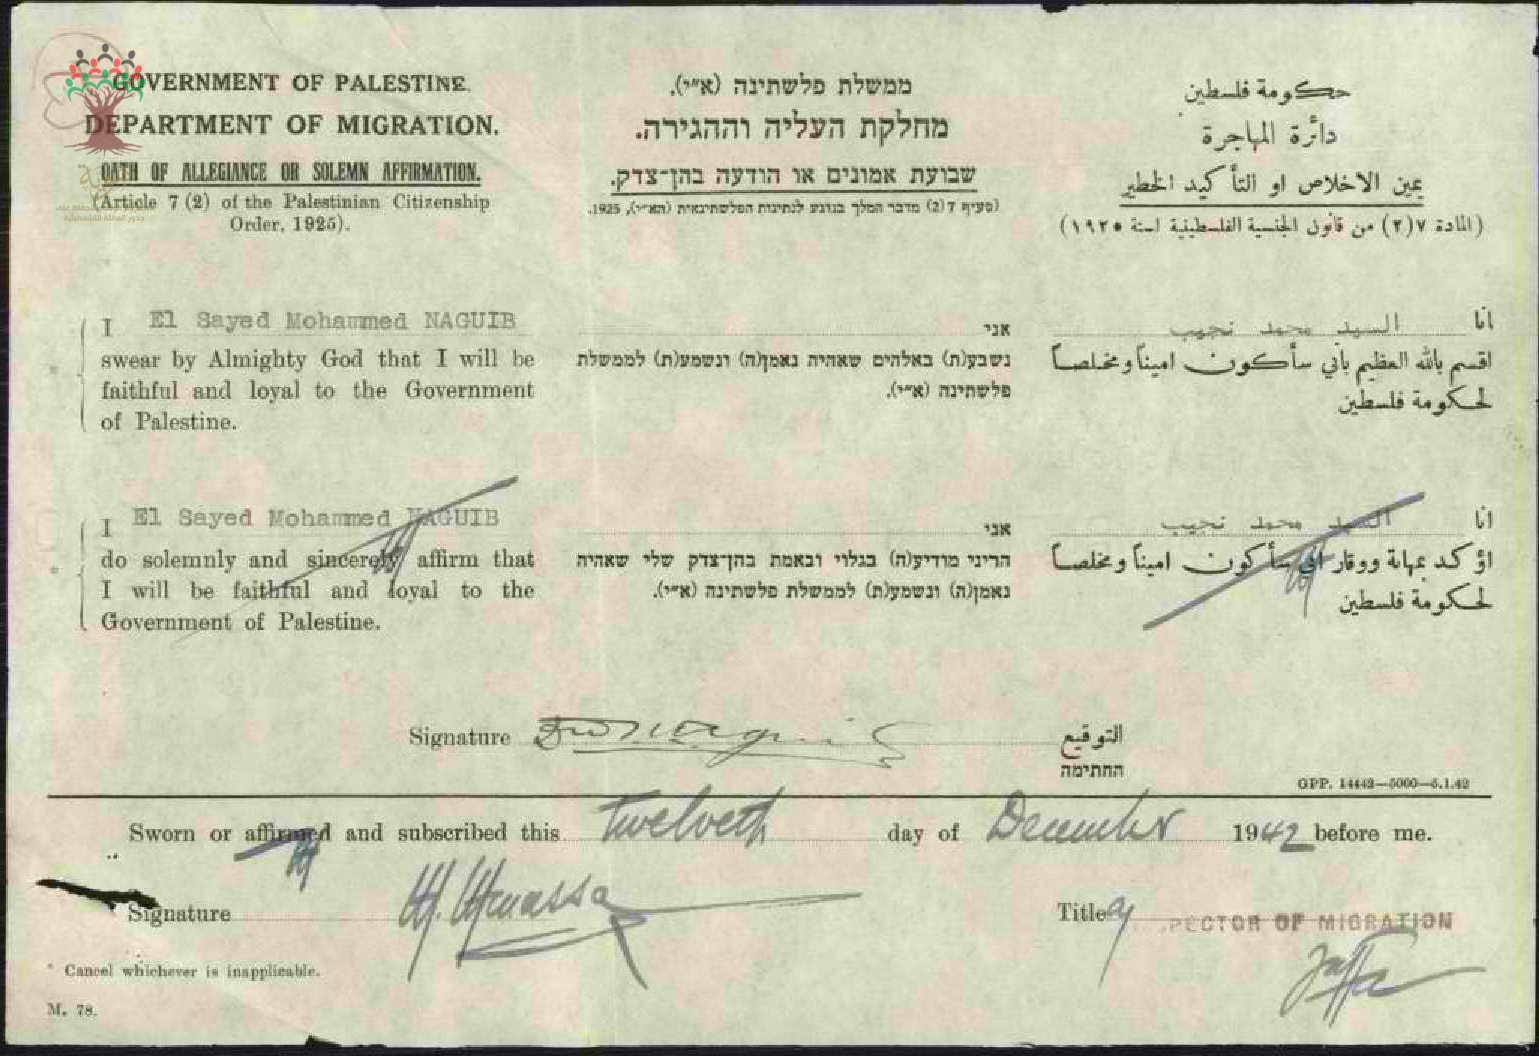 GOVERNMENT OF PALESTINE.
DEPARTMENT OF MIGRATION.
OATH OF ALLEGIANCE OR SOLEMN AFFIRMATION.
(Article 7 (2) of the Palestinian Citizenship
Order, 1925).
ממשלת פלשתינה (א״י).
מחלקת העליה וההגירה.
שבועת אמונים או הודעה בהן־צדק.
(סעיף 7 (2) מדבר המלך בנוגע לנתינות הפלשתינאית (הא״י), 1925.
حكومة فلسطين
دائرة المهاجرة
يمين الاخلاص او التأكيد الخطير
(المادة ٧ (٢) من قانون الجنسية الفلسطينية لسنة ١٩٢٥)
I El Sayed Mohammed NAGUIB
swear by Almighty God that I will be
faithful and loyal to the Government
of Palestine.
אני
נשבע(ת) באלהים שאהיה נאמן(ה) ונשמע(ת) לממשלת
פלשתינה (א״י).
انا السيد محمد نجيب
اقسم بالله العظيم بأني سأكون اميناً ومخلصاً
لحكومة فلسطين
I El Sayed Mohammed NAGUIB
do solemnly and sincerely affirm that
I will be faithful and loyal to the
Government of Palestine.
אני
הריני מודיע(ה) בגלוי ובאמת בהן־צדק שלי שאהיה
נאמן(ה) ונשמע(ת) לממשלת פלשתינה (א״י).
انا السيد محمد نجيب
اؤكد بمهابة ووقار اني سأكون اميناً ومخلصاً
لحكومة فلسطين
Signature
التوقيع
החתימה
GPP. 14442—5000—5.1.42
Sworn or affirmed and subscribed this twelveth day of December 1942 before me.
Signature
Title PECTOR OF MIGRATION
Jaffa
* Cancel whichever is inapplicable.
M. 78.